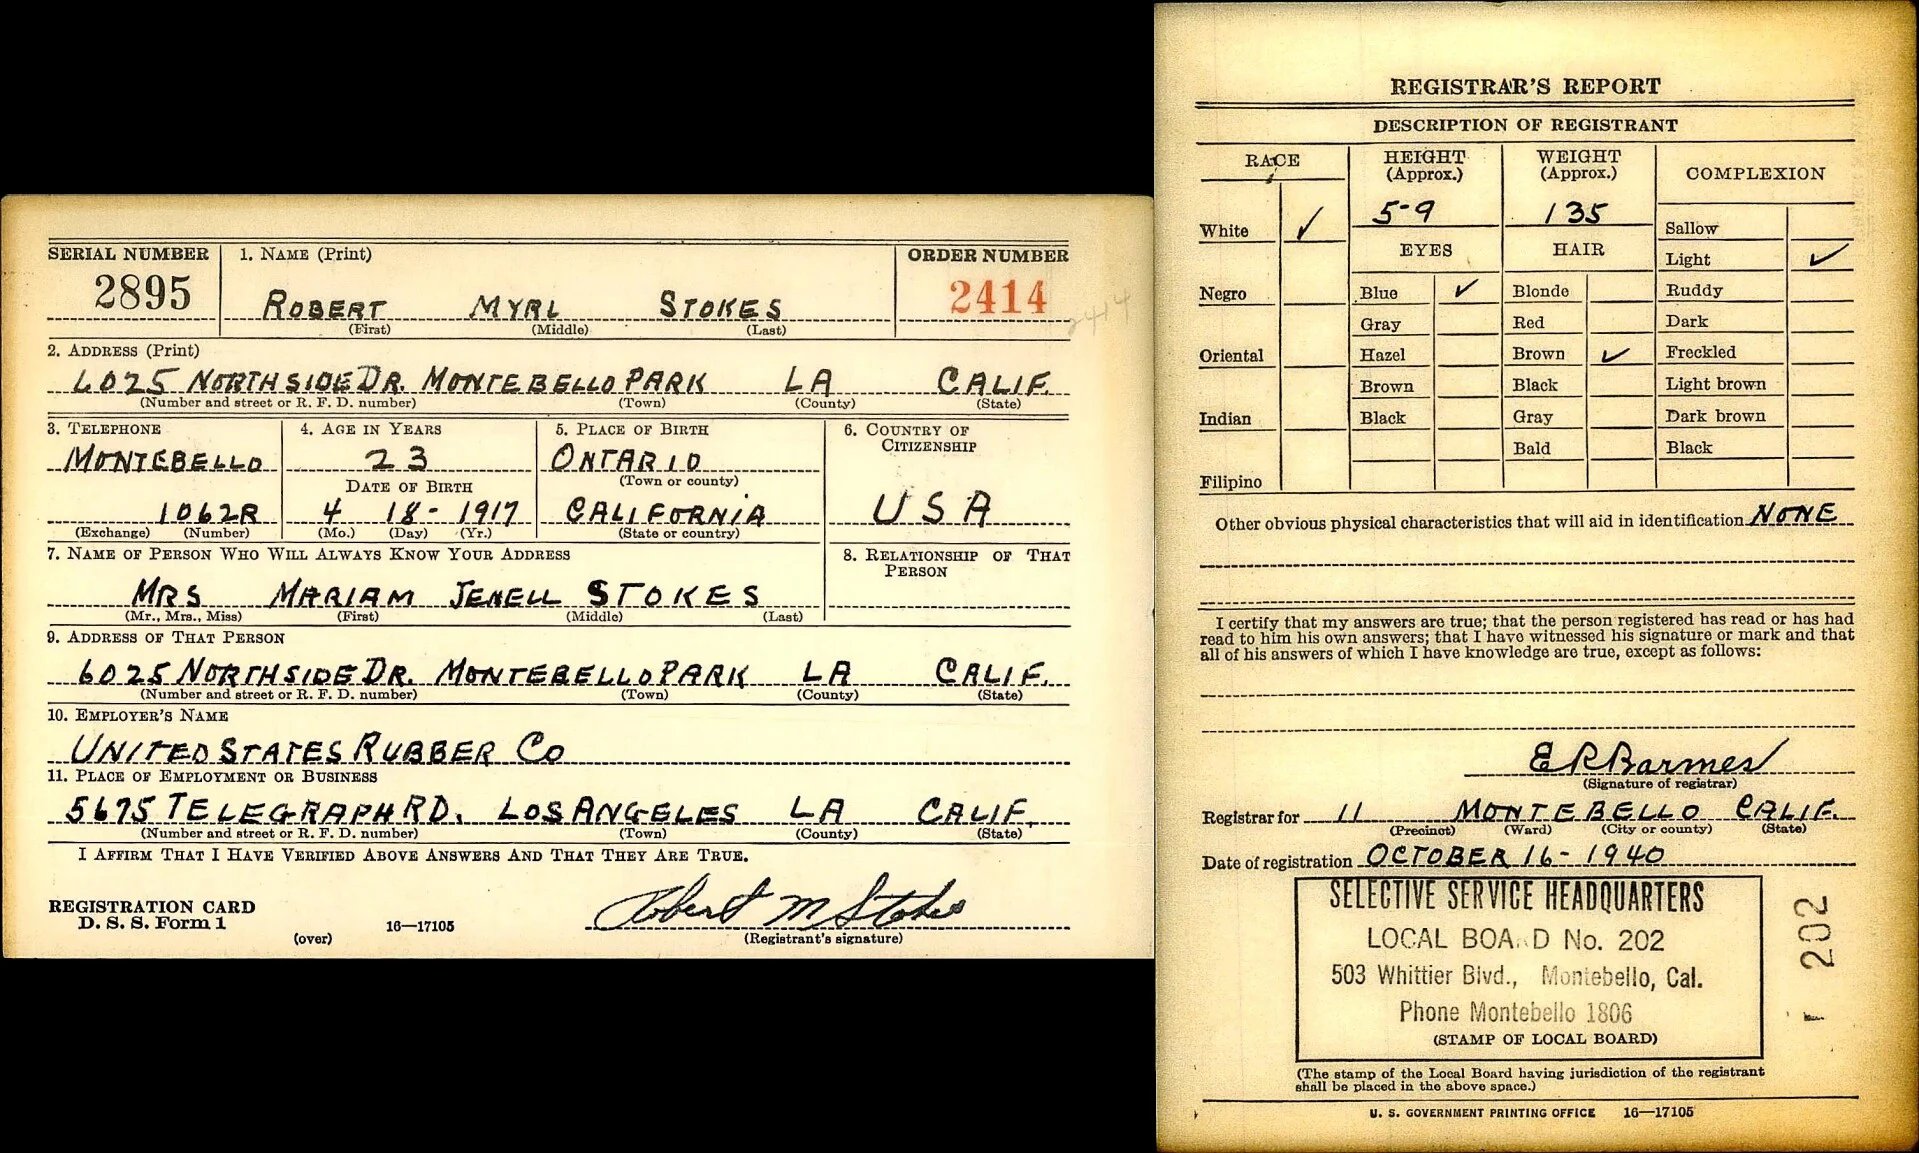 SERIAL NUMBER
1. NAME (Print)
ORDER NUMBER
2895
ROBERT MYRL STOKES
2414
2414
(First) (Middle) (Last)
2. ADDRESS (Print)
6025 NORTHSIDE DR. MONTEBELLO PARK LA CALIF.
(Number and street or R. F. D. number) (Town) (County) (State)
3. TELEPHONE
MONTEBELLO
1062R
(Exchange) (Number)
4. AGE IN YEARS
23
DATE OF BIRTH
4 18- 1917
(Mo.) (Day) (Yr.)
5. PLACE OF BIRTH
ONTARIO
(Town or county)
CALIFORNIA
(State or country)
6. COUNTRY OF
CITIZENSHIP
USA
7. NAME OF PERSON WHO WILL ALWAYS KNOW YOUR ADDRESS
MRS MARIAM JENELL STOKES
(Mr., Mrs., Miss) (First) (Middle) (Last)
8. RELATIONSHIP OF THAT
PERSON
9. ADDRESS OF THAT PERSON
6025 NORTHSIDE DR. MONTEBELLO PARK LA CALIF.
(Number and street or R. F. D. number) (Town) (County) (State)
10. EMPLOYER'S NAME
UNITED STATES RUBBER CO
11. PLACE OF EMPLOYMENT OR BUSINESS
5675 TELEGRAPH RD. LOS ANGELES LA CALIF.
(Number and street or R. F. D. number) (Town) (County) (State)
I AFFIRM THAT I HAVE VERIFIED ABOVE ANSWERS AND THAT THEY ARE TRUE.
Robert M Stokes
REGISTRATION CARD
D. S. S. Form 1
(over) 16—17105 (Registrant's signature)
REGISTRAR'S REPORT
DESCRIPTION OF REGISTRANT
RACE
White ✓
Negro
Oriental
Indian
Filipino
HEIGHT
(Approx.)
5-9
WEIGHT
(Approx.)
135
EYES
Blue ✓
Gray
Hazel
Brown
Black
HAIR
Blonde
Red
Brown ✓
Black
Gray
Bald
COMPLEXION
Sallow
Light ✓
Ruddy
Dark
Freckled
Light brown
Dark brown
Black
Other obvious physical characteristics that will aid in identification NONE
I certify that my answers are true; that the person registered has read or has had
read to him his own answers; that I have witnessed his signature or mark and that
all of his answers of which I have knowledge are true, except as follows:
E R Barmes
(Signature of registrar)
Registrar for 11 MONTEBELLO CALIF.
(Precinct) (Ward) (City or county) (State)
Date of registration OCTOBER 16- 1940
SELECTIVE SERVICE HEADQUARTERS
LOCAL BOARD No. 202
503 Whittier Blvd., Montebello, Cal.
Phone Montebello 1806
(STAMP OF LOCAL BOARD)
202
(The stamp of the Local Board having jurisdiction of the registrant
shall be placed in the above space.)
U. S. GOVERNMENT PRINTING OFFICE 16—17105